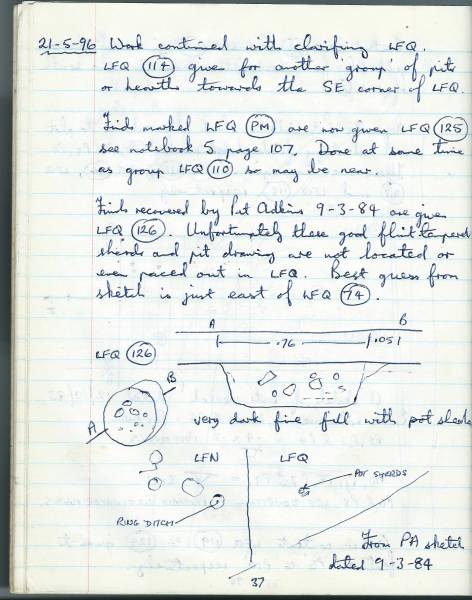 21-5-96 Work continued with clarifying LFQ.
LFQ 114 given for another 'group' of pits
or hearths towards the SE corner of LFQ.
Finds marked LFQ PM are now given LFQ 125
see notebook 5 page 107. Done at same time
as group LFQ 110 so may be near.
Finds recovered by Pat Adkins 9-3-84 are given
LFQ 126. Unfortunately these good flint tempered
sherds and pit drawing are not located or
even paced out in LFQ. Best guess from
sketch is just east of LFQ 74.
A B
.76 .05
LFQ 126
B
A
very dark fine fill with pot sherds
LFN LFQ
POT SHERDS
RING DITCH
From PA sketch
dated 9-3-84
37